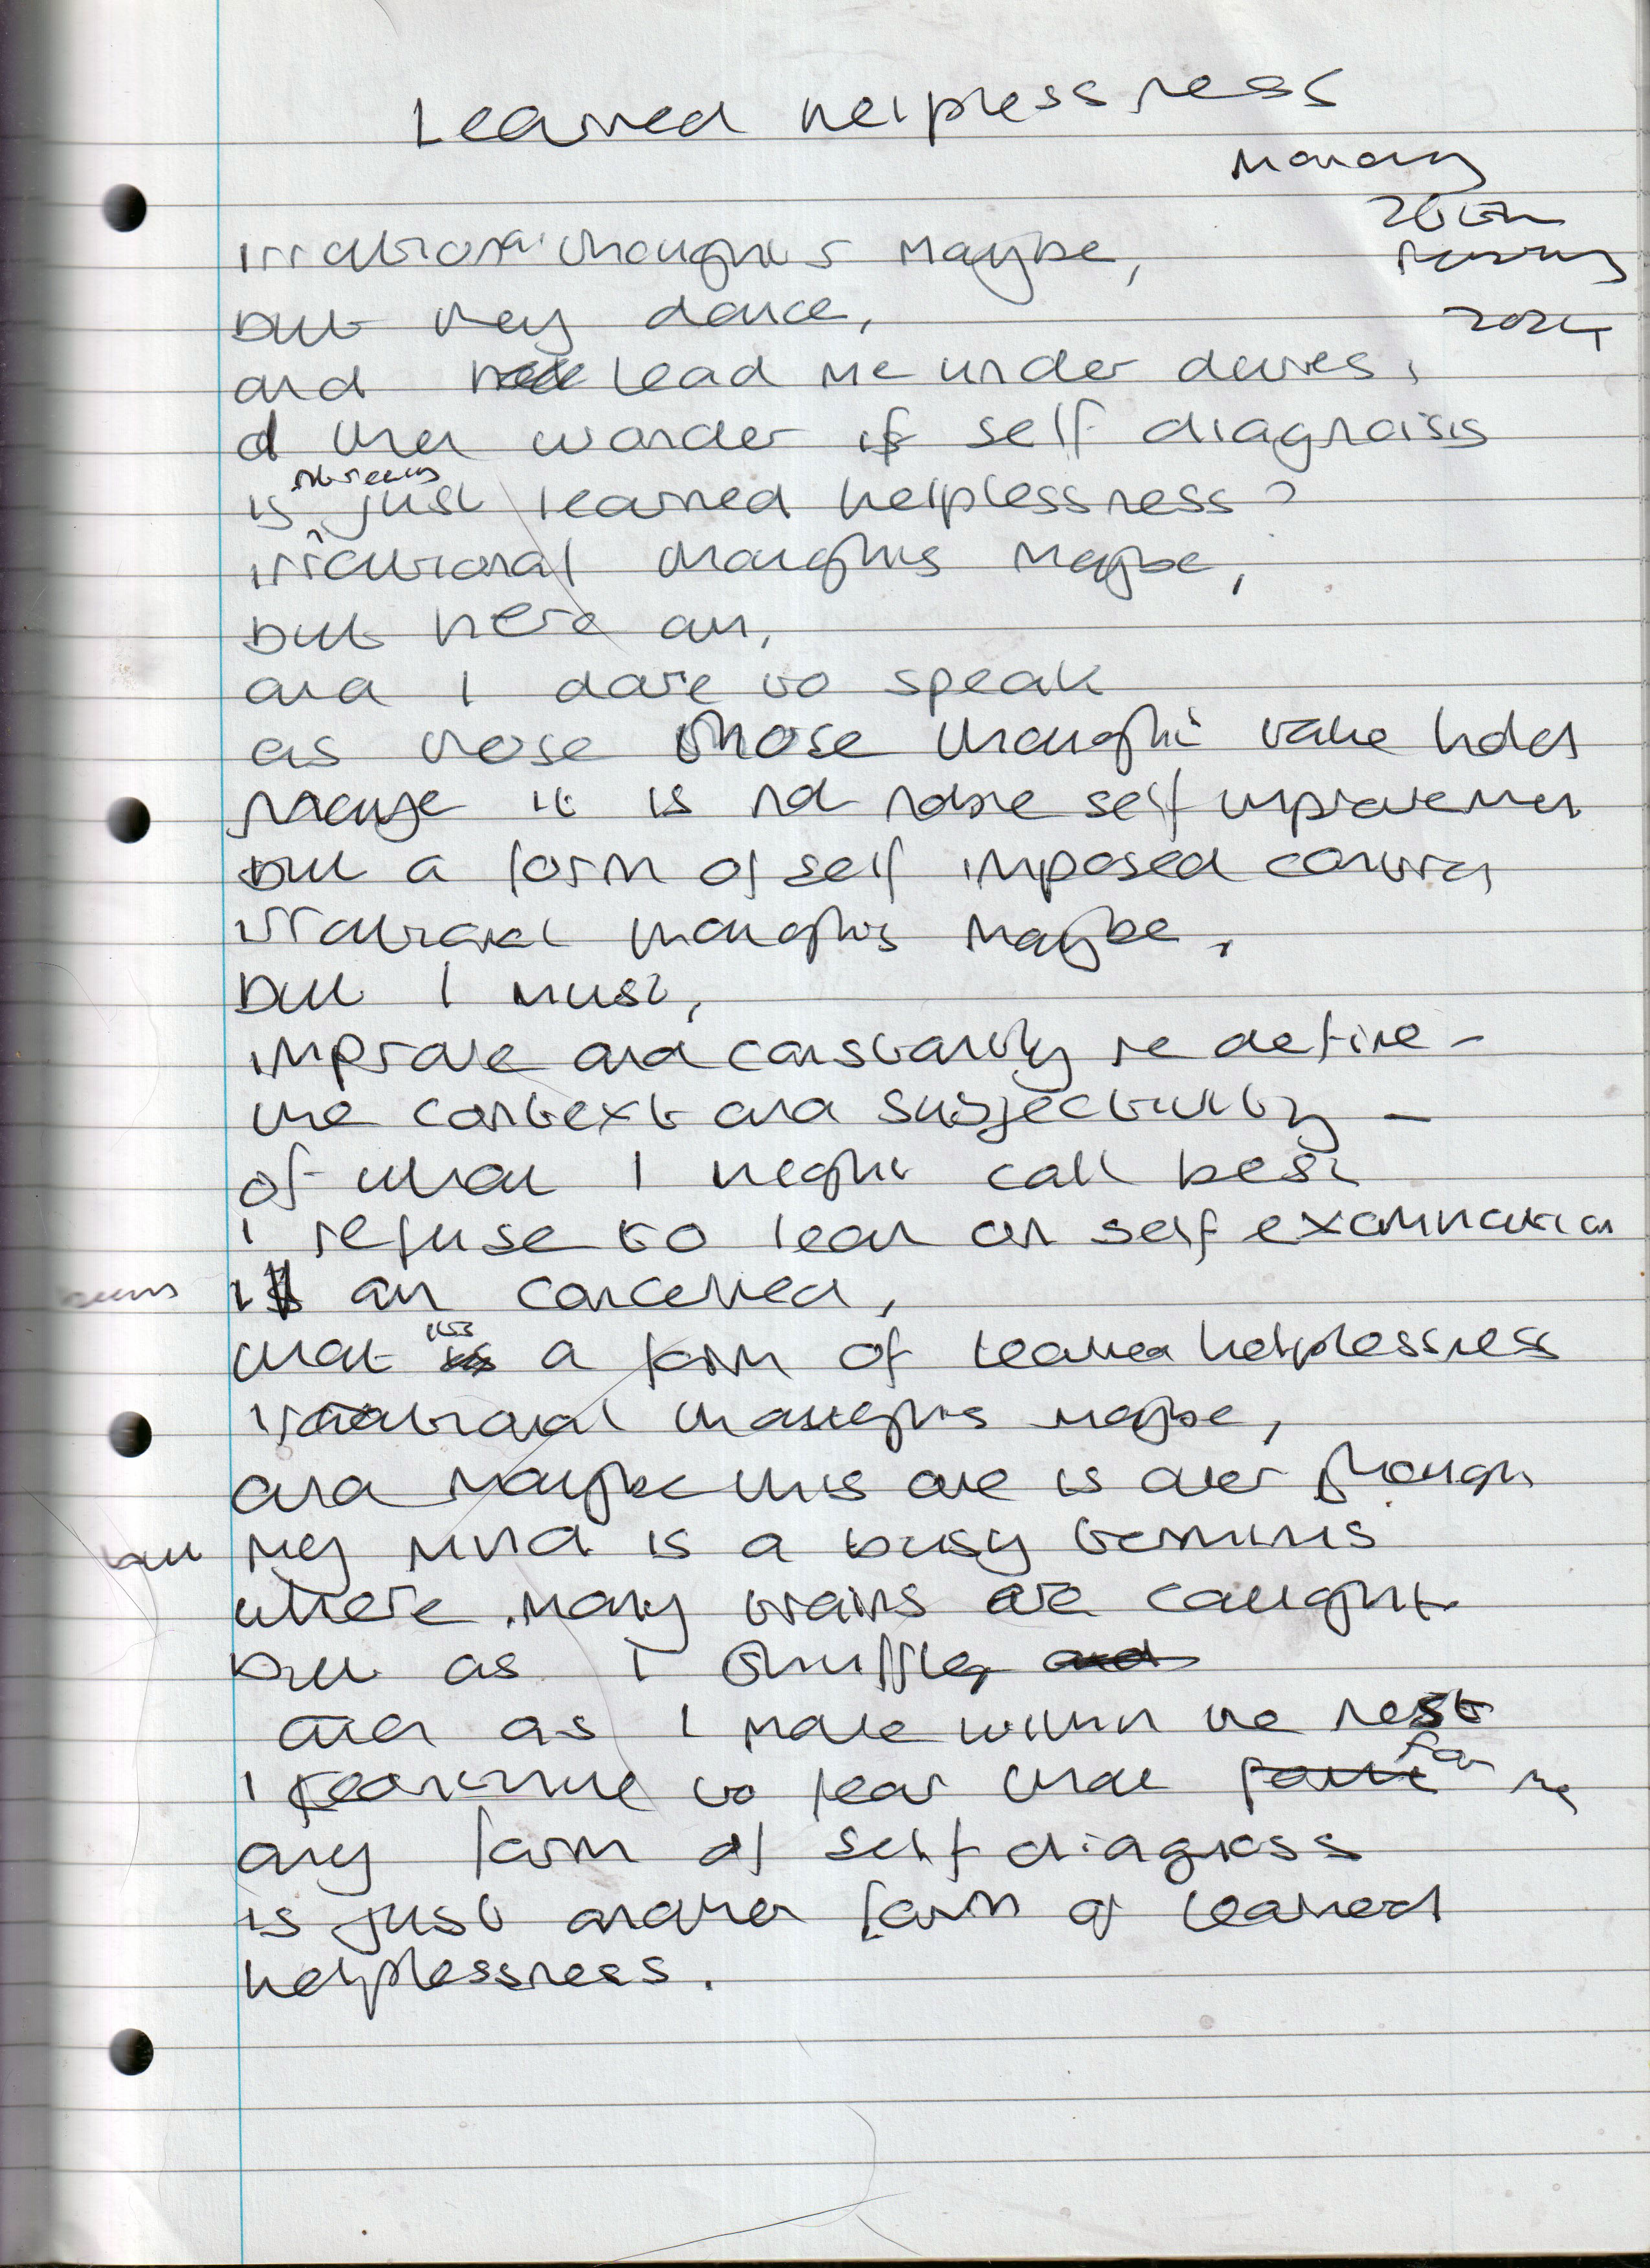 Learned helplessness
Monday
26th
February
2024
irrational thoughts maybe,
but they dance,
and lead me under duress,
I then wonder if self diagnosis
is just learned helplessness?
irrational thoughts maybe,
but here am,
and I dare to speak
as those thoughts take hold
maybe it is not noble self improvement
but a form of self imposed control
irrational thoughts maybe,
but I must,
improve and constantly re define -
the context and subjectivity -
of what I might call best
I refuse to lean on self examination
I am concerned,
that its a form of learned helplessness
irrational thoughts maybe,
and maybe this one is over thought
but my mind is a busy terminus
where many trains are caught
but as I shuffle,
and as I move within the rest
I continue to fear that for me
any form of self diagnosis
is just another form of learned
helplessness.